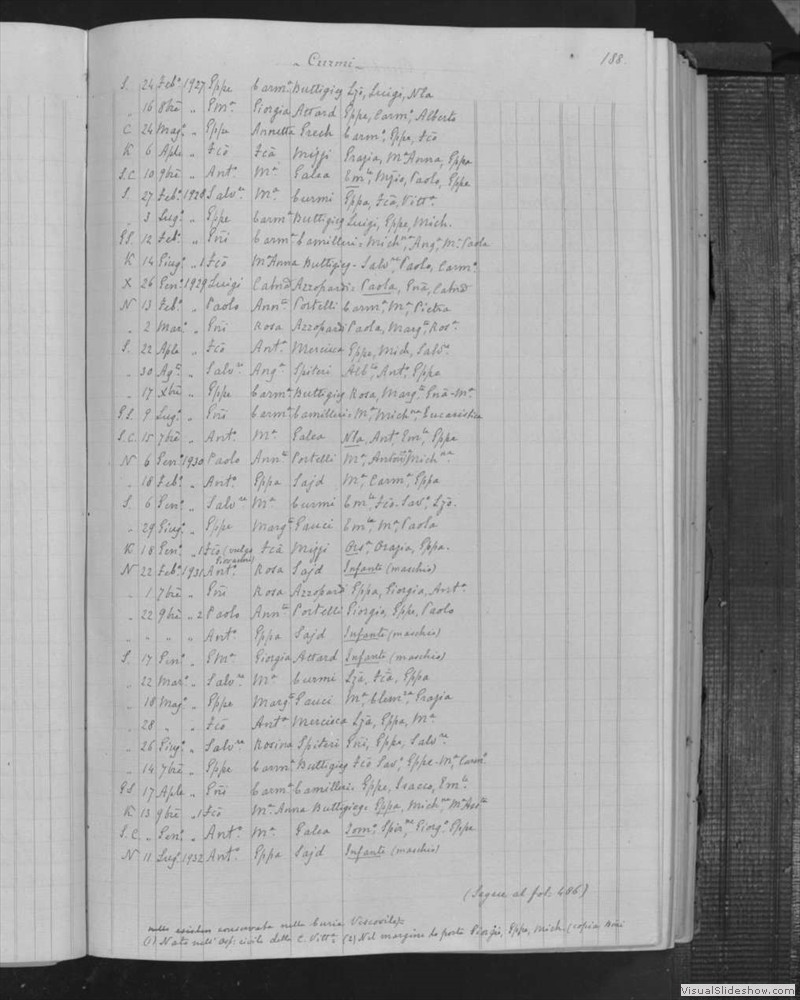 - Curmi - 188
S. 24 Feb. 1927 Eppe Carm. Buttigieg Ljō, Luigi, Nla
" 16 8bre " EMa. Giorgia Attard Eppe, Carm. Alberto
C 24 Mag. " Eppe Annetta Grech Carm. Eppe, Fcō
K 6 Aple " Fcō Fcā Mizzi Grazia, Ma Anna, Eppa
S.C. 10 9bre " Ant. Ma. Galea Paolo, Eppe
S. 27 Feb. 1928 Salv. Ma. Curmi Eppa, Fcō, Vitt.
" 3 Lug. " Eppe Carm. Buttigieg Luigi, Eppe, Mich.
GS. 12 Feb. " Gñi Carm. Camilleri = Mich. Ang. Ma. Paola
K 14 Giug. " 1 Fcō Ma Anna Buttigieg - Salv. Paolo, Carm.
X 26 Gen. 1929 Luigi Azzopardi = Paola, Gñā,
N 13 Feb. " Paolo Ann. Portelli Carm. Ma. Pietra
" 2 Mar. " Gñi Rosa Azzopardi Paola, Marg. Ros.
S. 22 Aple " Fcō Ant. Mercieca Eppe, Mich, Salv.
" 30 Ag. " Salv. Ang. Spiteri Ant. Eppa
" 17 Xbre " Eppe Carm. Buttigieg Rosa, Marg. Gñā-Ma.
GS. 9 Lug. " Gñi Carm. Camilleri = Ma. Mich. Eucaristica
S.C. 15 7bre " Ant. Ma. Galea Nla, Ant. Em. Eppe
N 6 Gen. 1930 Paolo Ann. Portelli Ma. Anton. Mich.
" 18 Feb. " Ant. Eppa Sajd Ma. Carm. Eppa
S. 6 Gen. " Salv. Ma. Curmi Em. Fcō. Sav. Ljō.
" 29 Giug. " Eppe Marg. Gauci Em. Ma. Paola
K 18 Gen. " 1 Fcō (vulgo Giovanni) Fcā Mizzi Grazia, Eppa.
N 22 Feb. 1931 Ant. Rosa Sajd Infante (maschio)
" 1 7bre " Gñi Rosa Azzopard Eppa, Giorgia, Ant.
" 22 9bre " 2 Paolo Ann. Portelli Giorgio, Eppe, Paolo
" " " " Ant. Eppa Sajd Infante (maschio)
S. 17 Gen. " EMa. Giorgia Attard Infante (maschio)
" 22 Mar. " Salv. Ma. Curmi Ljā, Fcā, Eppa
" 18 Mag. " Eppe Marg. Gauci Ma. Clem. Grazia
" 28 " " Fcō Ant. Mercieca Ljā, Eppa, Ma
" 26 Giug. " Salv. Rosina Spiteri Gñi, Eppe, Salv.
" 14 7bre " Eppe Carm. Buttigieg Fcō Sav. Eppe-Ma. Carm.
GS. 17 Aple " Gñi Carm. Camilleri = Eppe, Isacco, Em.
K 13 9bre " 1 Fcō Ma. Anna Buttigieg = Eppa, Mich. Ma
S.C. " Gen. " Ant. Ma. Galea Giorg. Eppe
N 11 Lug. 1932 Ant. Eppa Sajd Infante (maschio)
(Segue al fol. 486)
nella conservata nella Curia Vescovile) =
(1) Nato nell' Osp. civile della C. Vitt. (2) Nel margine lo porta Giorgio, Eppe, Mich. (copia
VisualSlideshow.com